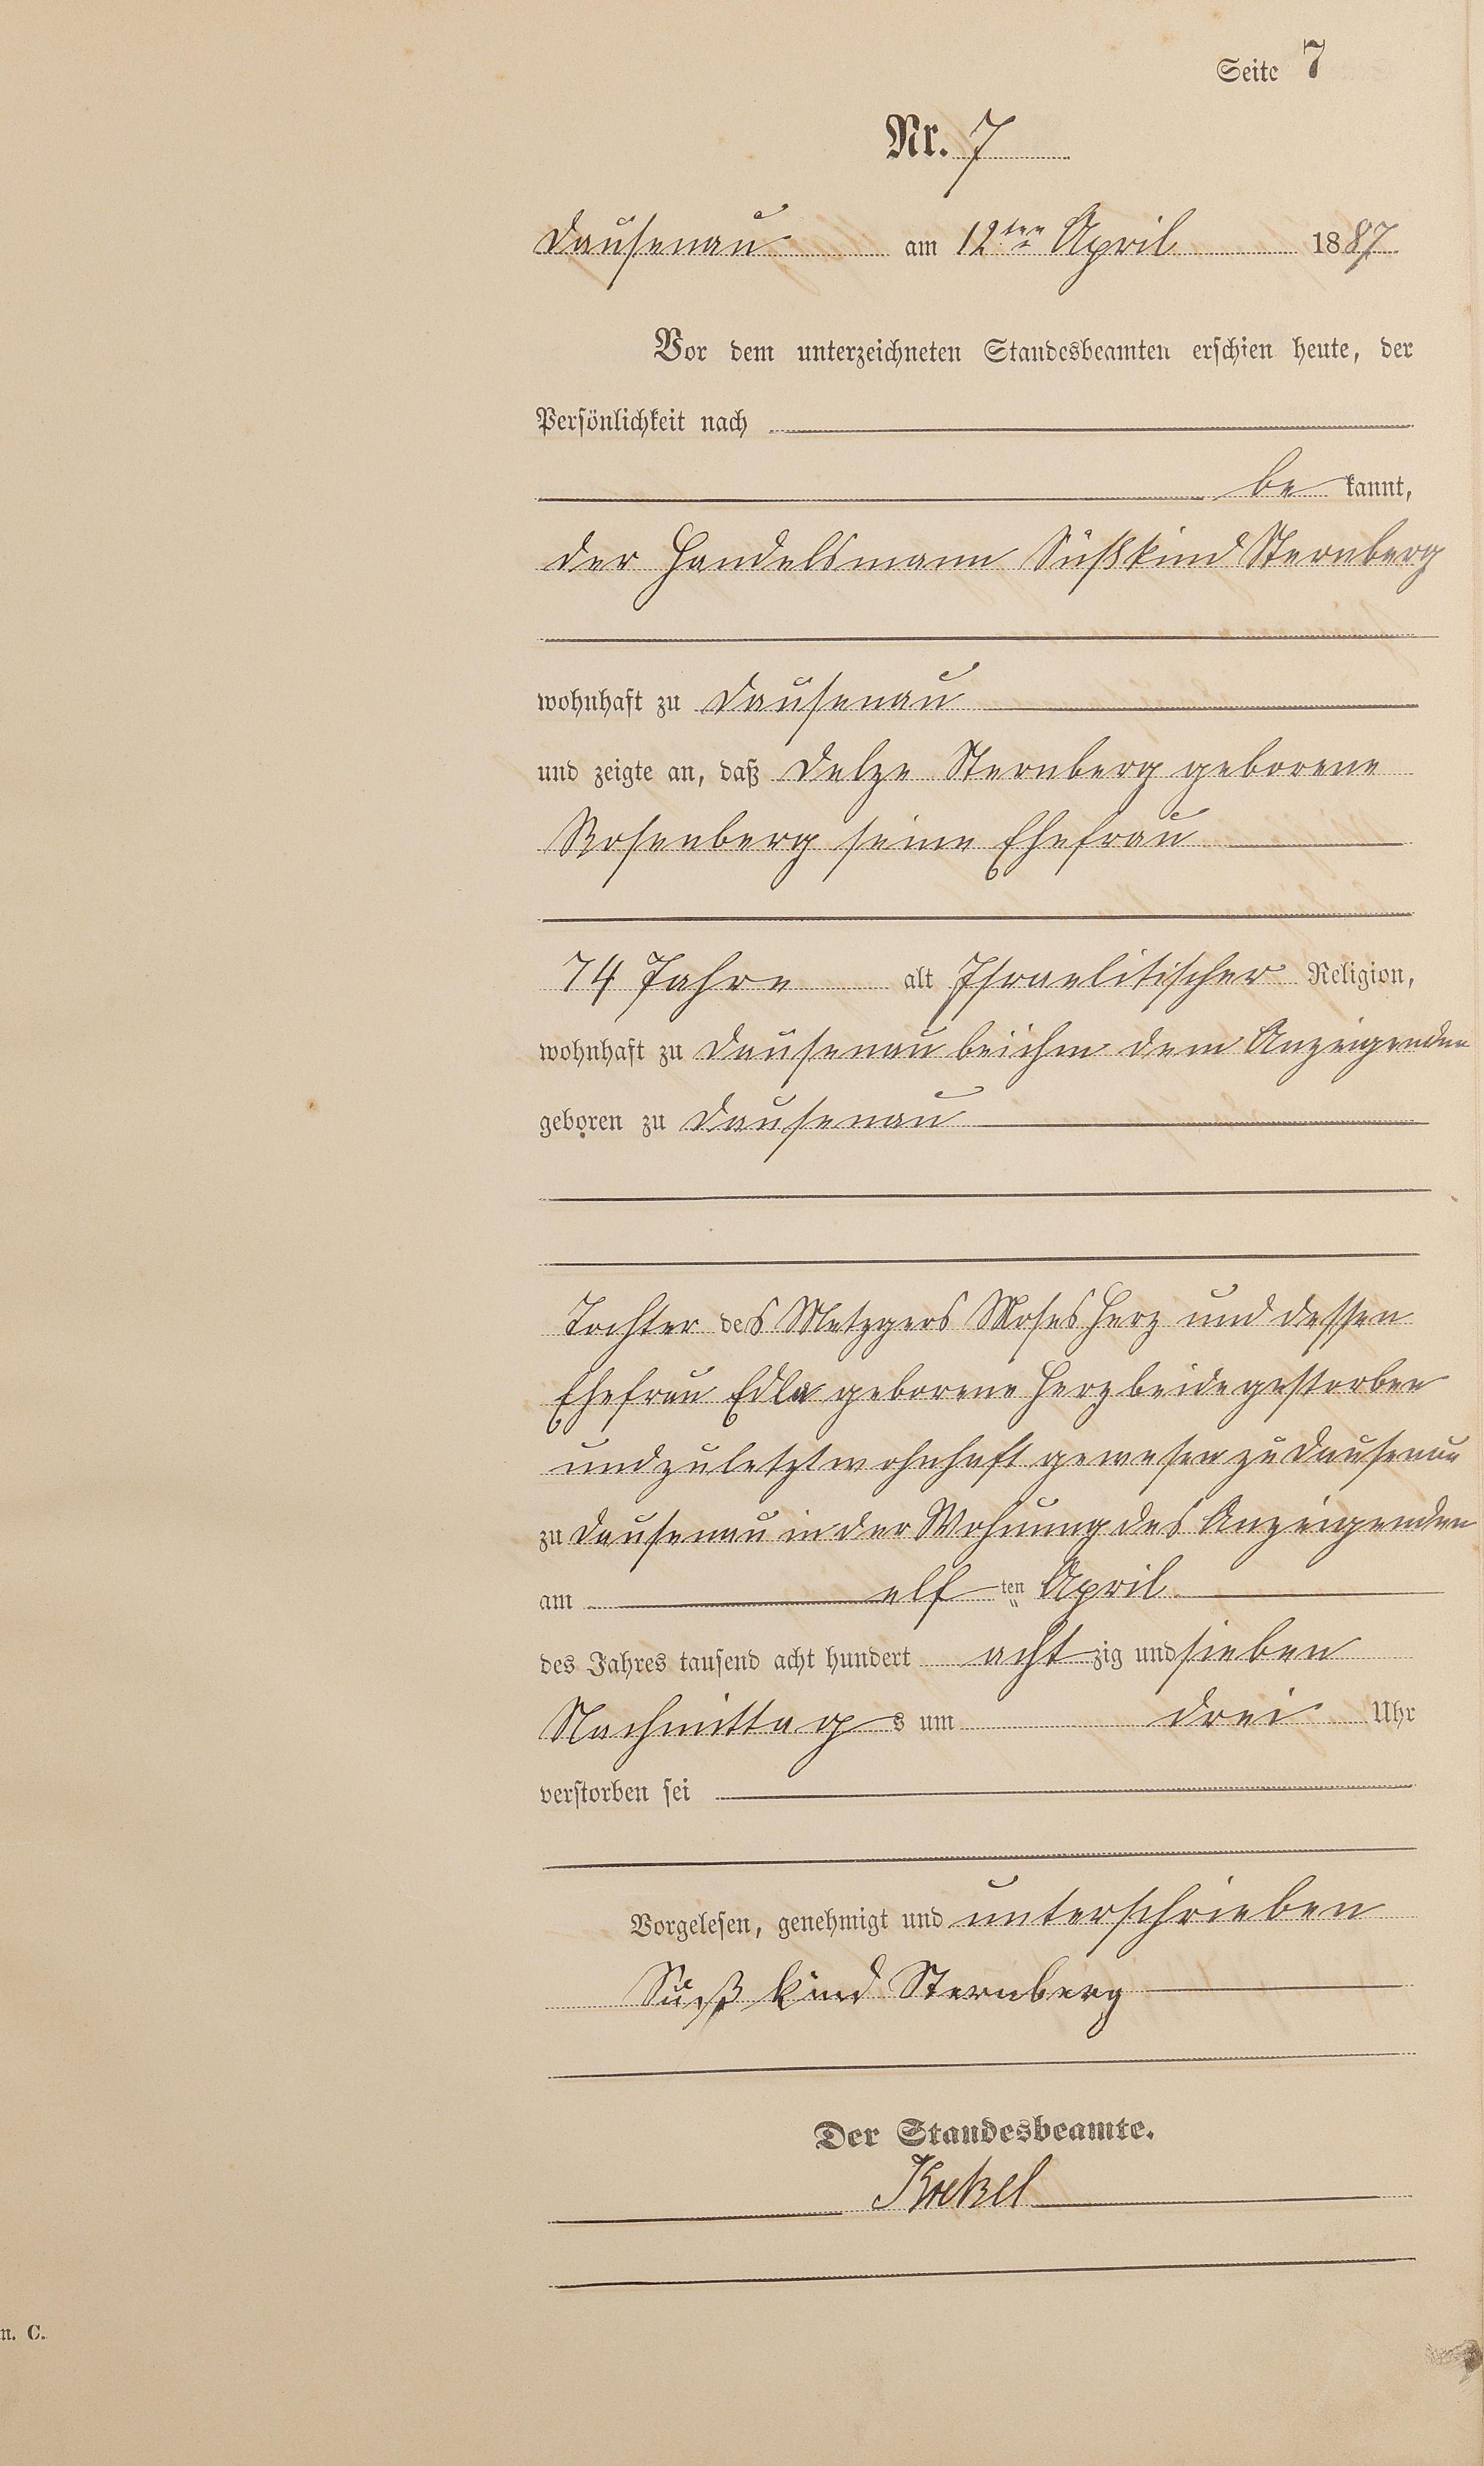 Seite 7
Nr. 7
Dausenau am 12ten April 1887
Vor dem unterzeichneten Standesbeamten erschien heute, der
Persönlichkeit nach
be kannt,
der Handelsmann Süßkind Sternberg
wohnhaft zu Dausenau
und zeigte an, daß Delze Sternberg geborene
Rosenberg seine Ehefrau
74 Jahre alt Israelitischer Religion,
wohnhaft zu Dausenau bei ihm dem Anzeigenden
geboren zu Dausenau
Tochter des Metzgers Moses Herz und dessen
Ehefrau Edla geborene Herz beide gestorben
und zuletzt wohnhaft gewesen zu Dausenau
zu Dausenau in der Wohnung des Anzeigenden
am elf ten April
des Jahres tausend acht hundert acht zig und sieben
Nachmittag s um drei Uhr
verstorben sei
Vorgelesen, genehmigt und unterschrieben
Süß kind Sternberg
Der Standesbeamte.
n. C.